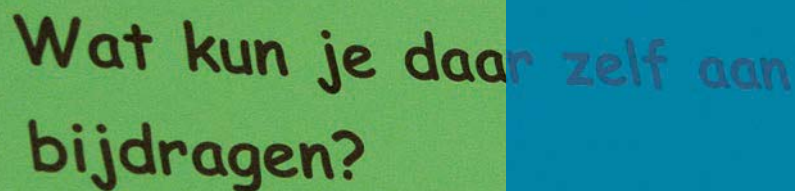 Wat kun je daar zelf aan
bijdragen?